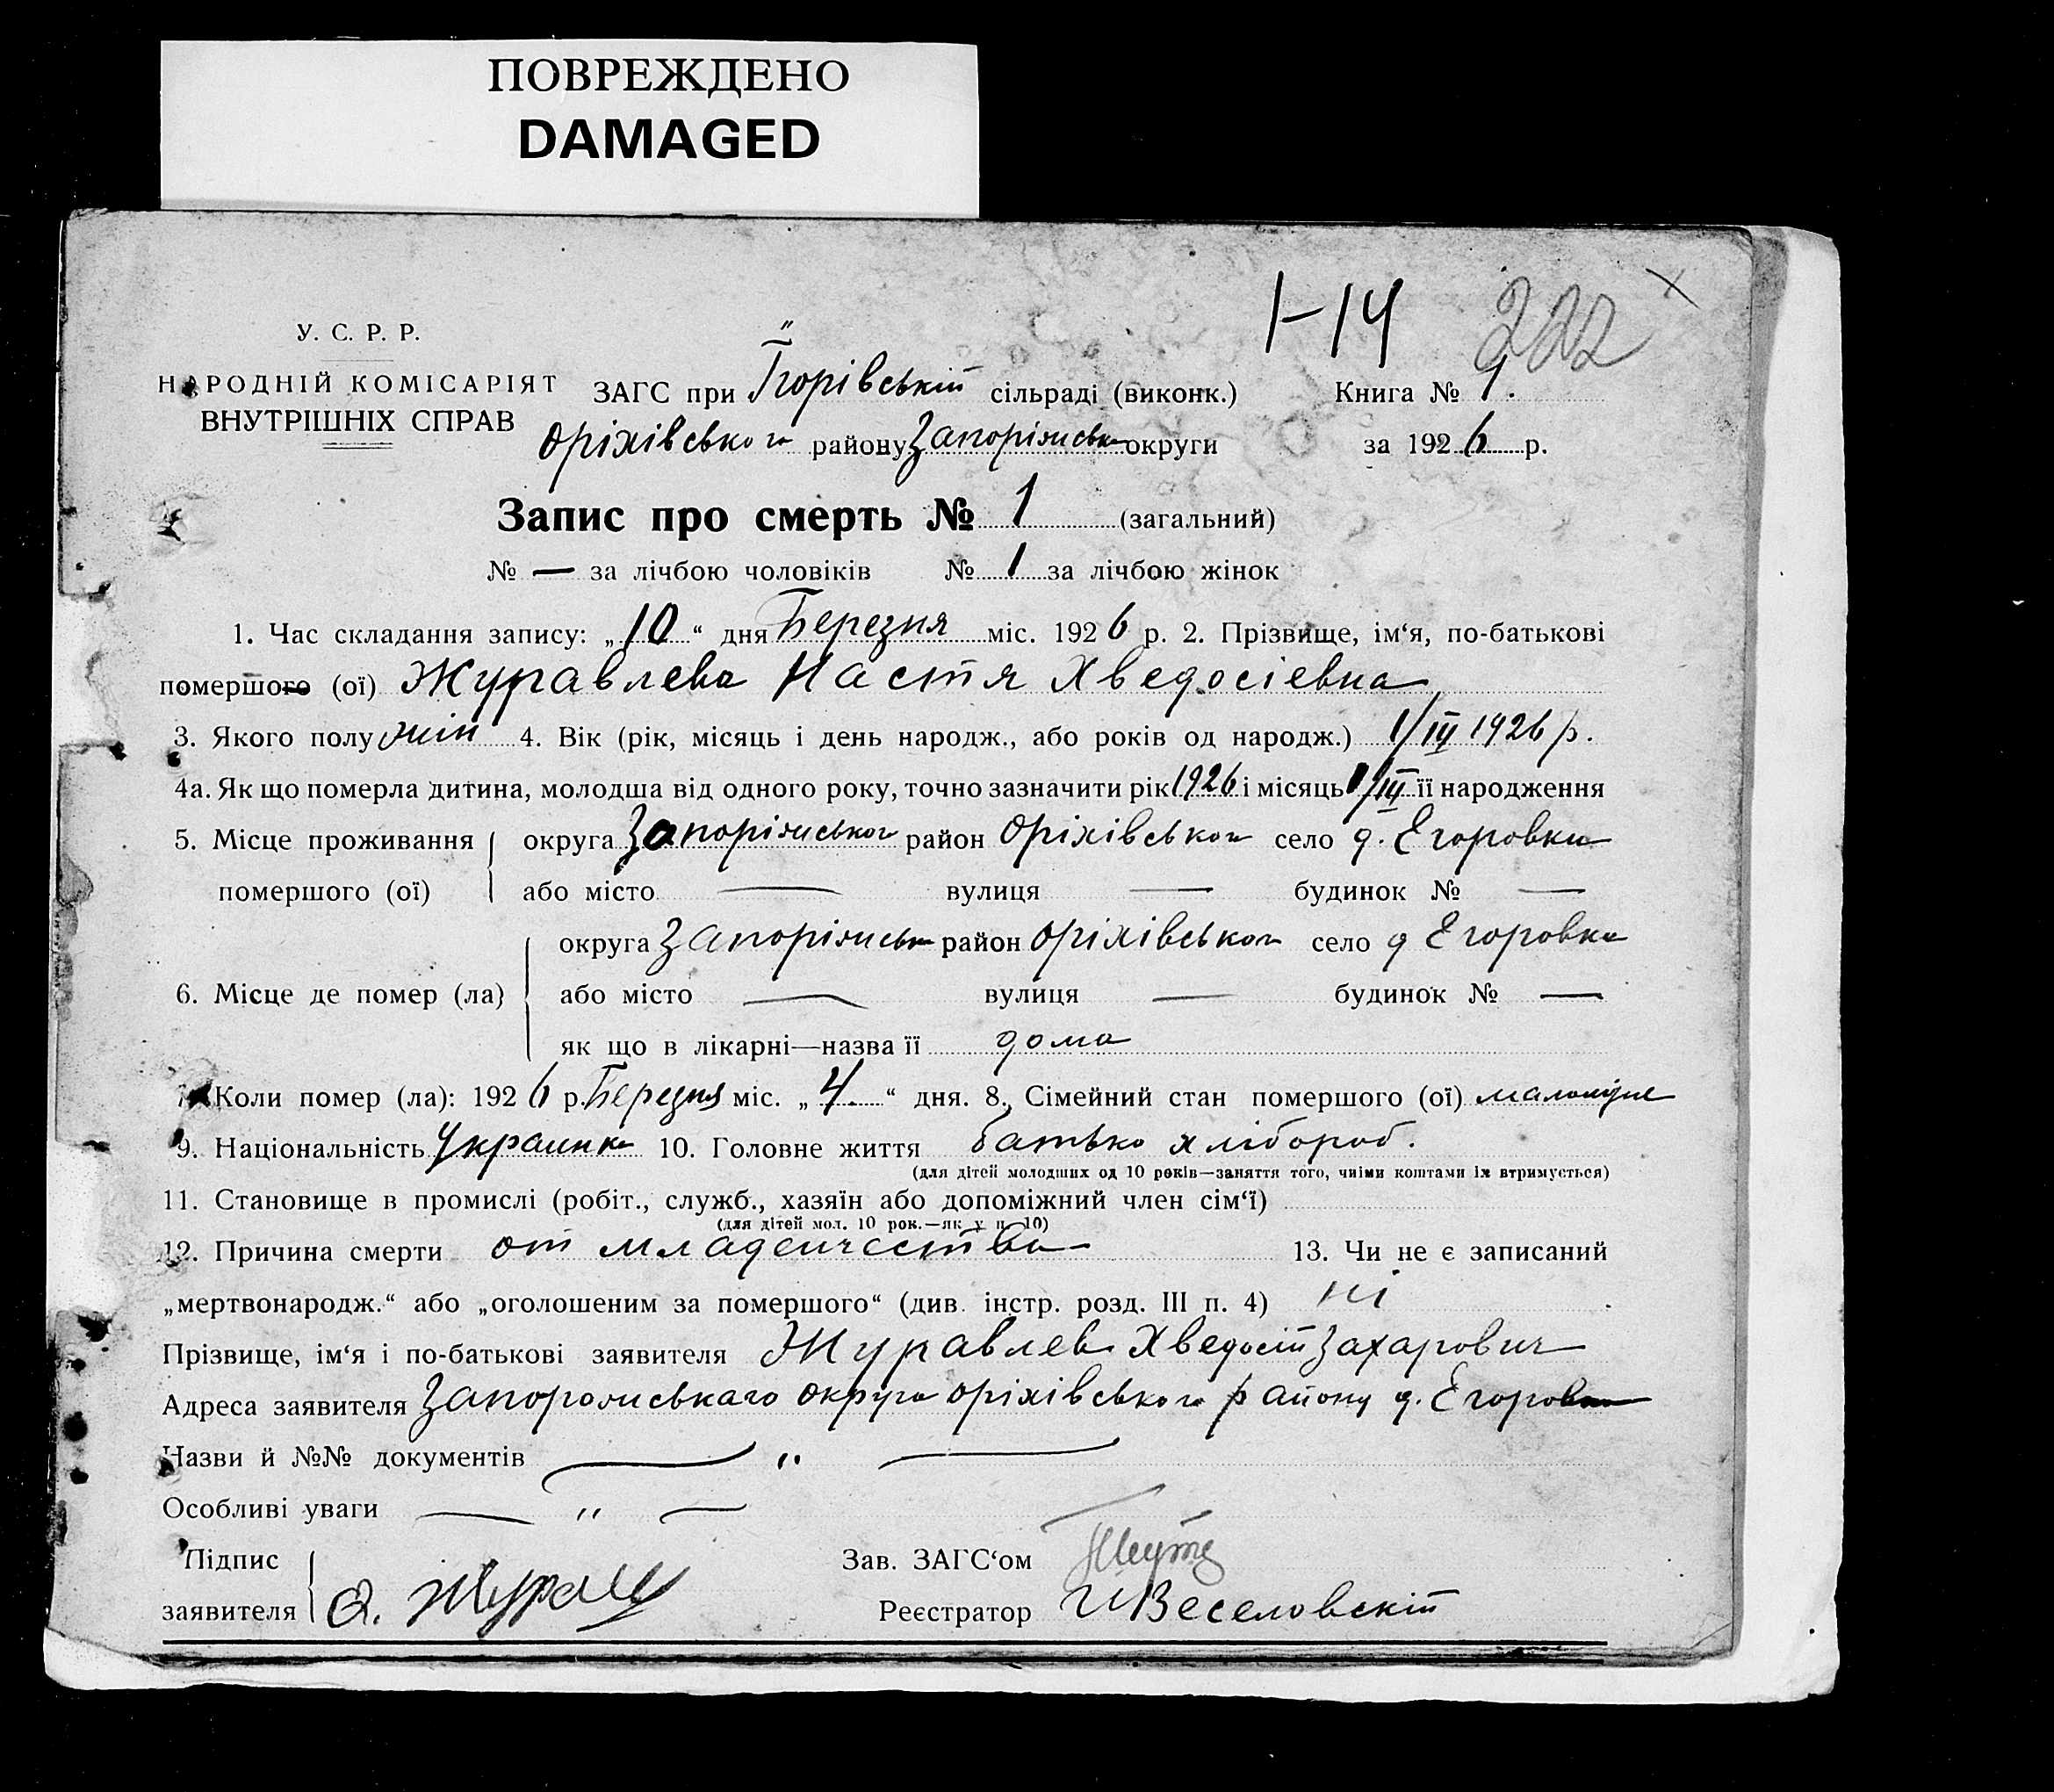 ПОВРЕЖДЕНО
DAMAGED
1-14 222
У. С. Р. Р.
НАРОДНІЙ КОМІСАРІЯТ
ВНУТРІШНІХ СПРАВ
ЗАГС при Їгорівській сільраді (виконк.) Книга № 1.
Оріхівського району Запоріжськ округи за 1926 р.
Запис про смерть № 1 (загальний)
№ — за лічбою чоловіків № 1 за лічбою жінок
1. Час складання запису: „10“ дня Березня міс. 1926 р. 2. Прізвище, ім‘я, по-батькові
помершого (ої) Журавлева Настя Хведосіевна
3. Якого полу жін 4. Вік (рік, місяць і день народж., або років од народж.) 1/III 1926 р.
4а. Як що померла дитина, молодша від одного року, точно зазначити рік 1926 і місяць 1/III її народження
5. Місце проживання округа Запоріжського район Оріхівського село д. Егоровка
помершого (ої) або місто — вулиця — будинок № —
округа Запоріжськ район Оріхівського село д Егоровка
6. Місце де помер (ла) або місто — вулиця — будинок № —
як що в лікарні—назва її дома
7. Коли помер (ла): 1926 р. Березня міс. „4.“ дня. 8. Сімейний стан помершого (ої)
9. Національність Украинка 10. Головне життя батько хлібороб.
(для дітей молодших од 10 років—заняття того, чиїми коштами їх втримується)
11. Становище в промислі (робіт., служб., хазяїн або допоміжний член сім‘ї)
(для дітей мол. 10 рок.—як у п. 10)
12. Причина смерти от младенчества 13. Чи не є записаний
„мертвонародж.“ або „оголошеним за помершого“ (див. інстр. розд. III п. 4) ні
Прізвище, ім‘я і по-батькові заявителя Журавлев Хведосій Захарович
Адреса заявителя Запорожськаго округа Оріхівського району д. Егоровка
Назви й №№ документів — „ —
Особливі уваги — „ —
Підпис Зав. ЗАГС‘ом
заявителя Реєстратор И Веселовскій